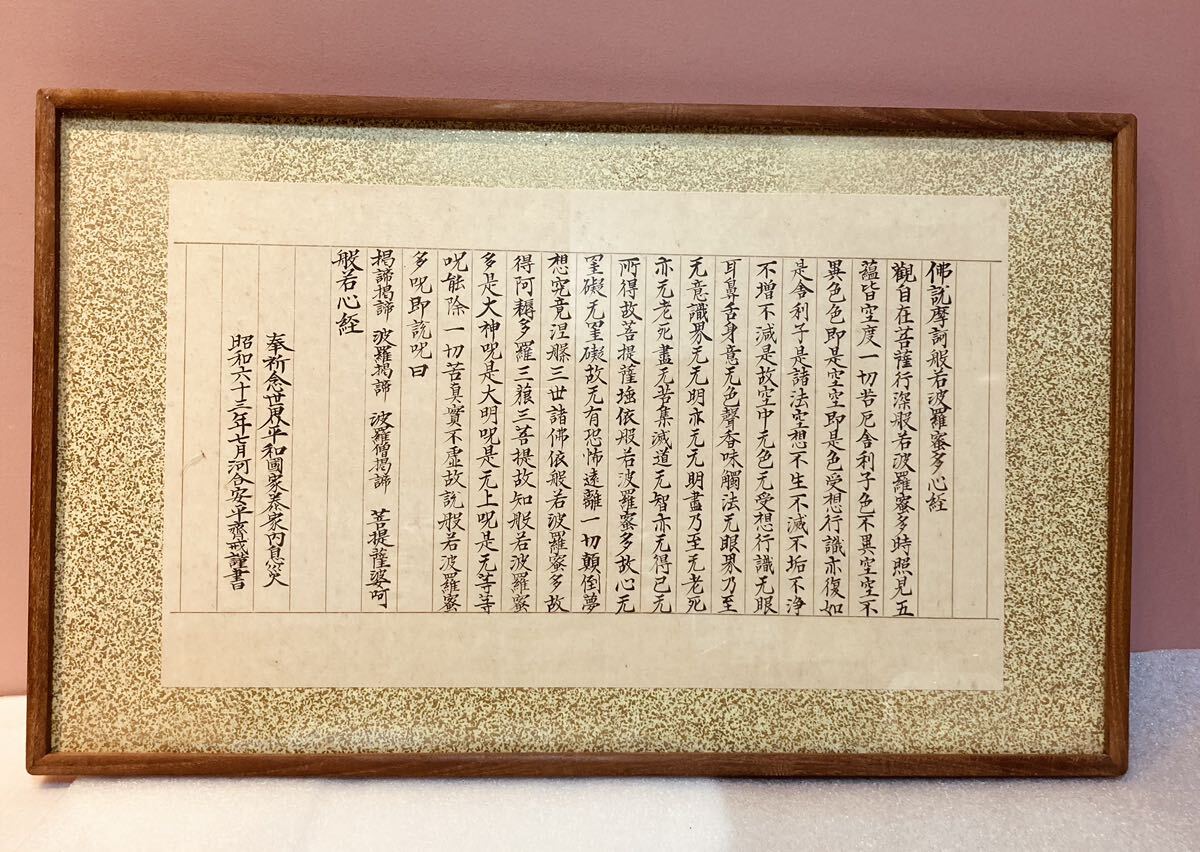 佛説摩訶般若波羅蜜多心経
觀自在菩薩行深般若波羅蜜多時照見五
蘊皆空度一切苦厄舎利子色不異空空不
異色色即是空空即是色受想行識亦復如
是舎利子是諸法空想不生不滅不垢不浄
不增不減是故空中无色无受想行識无眼
耳鼻舌身意无色聲香味觸法无眼界乃至
无意識界无无明亦无无明盡乃至无老死
亦无老死盡无苦集滅道无智亦无得已无
所得故菩提薩埵依般若波羅蜜多故心无
罣礙无罣礙故无有恐怖遠離一切顛倒夢
想究竟涅槃三世諸佛依般若波羅蜜多故
得阿耨多羅三藐三菩提故知般若波羅蜜
多是大神呪是大明呪是无上呪是无等等
呪能除一切苦真實不虚故説般若波羅蜜
多呪即説呪曰
掲諦掲諦 波羅掲諦 波羅僧掲諦 菩提薩婆呵
般若心経
奉祈念世界平和國家泰家内息災
昭和六十三年七月河合安平齋戒謹書